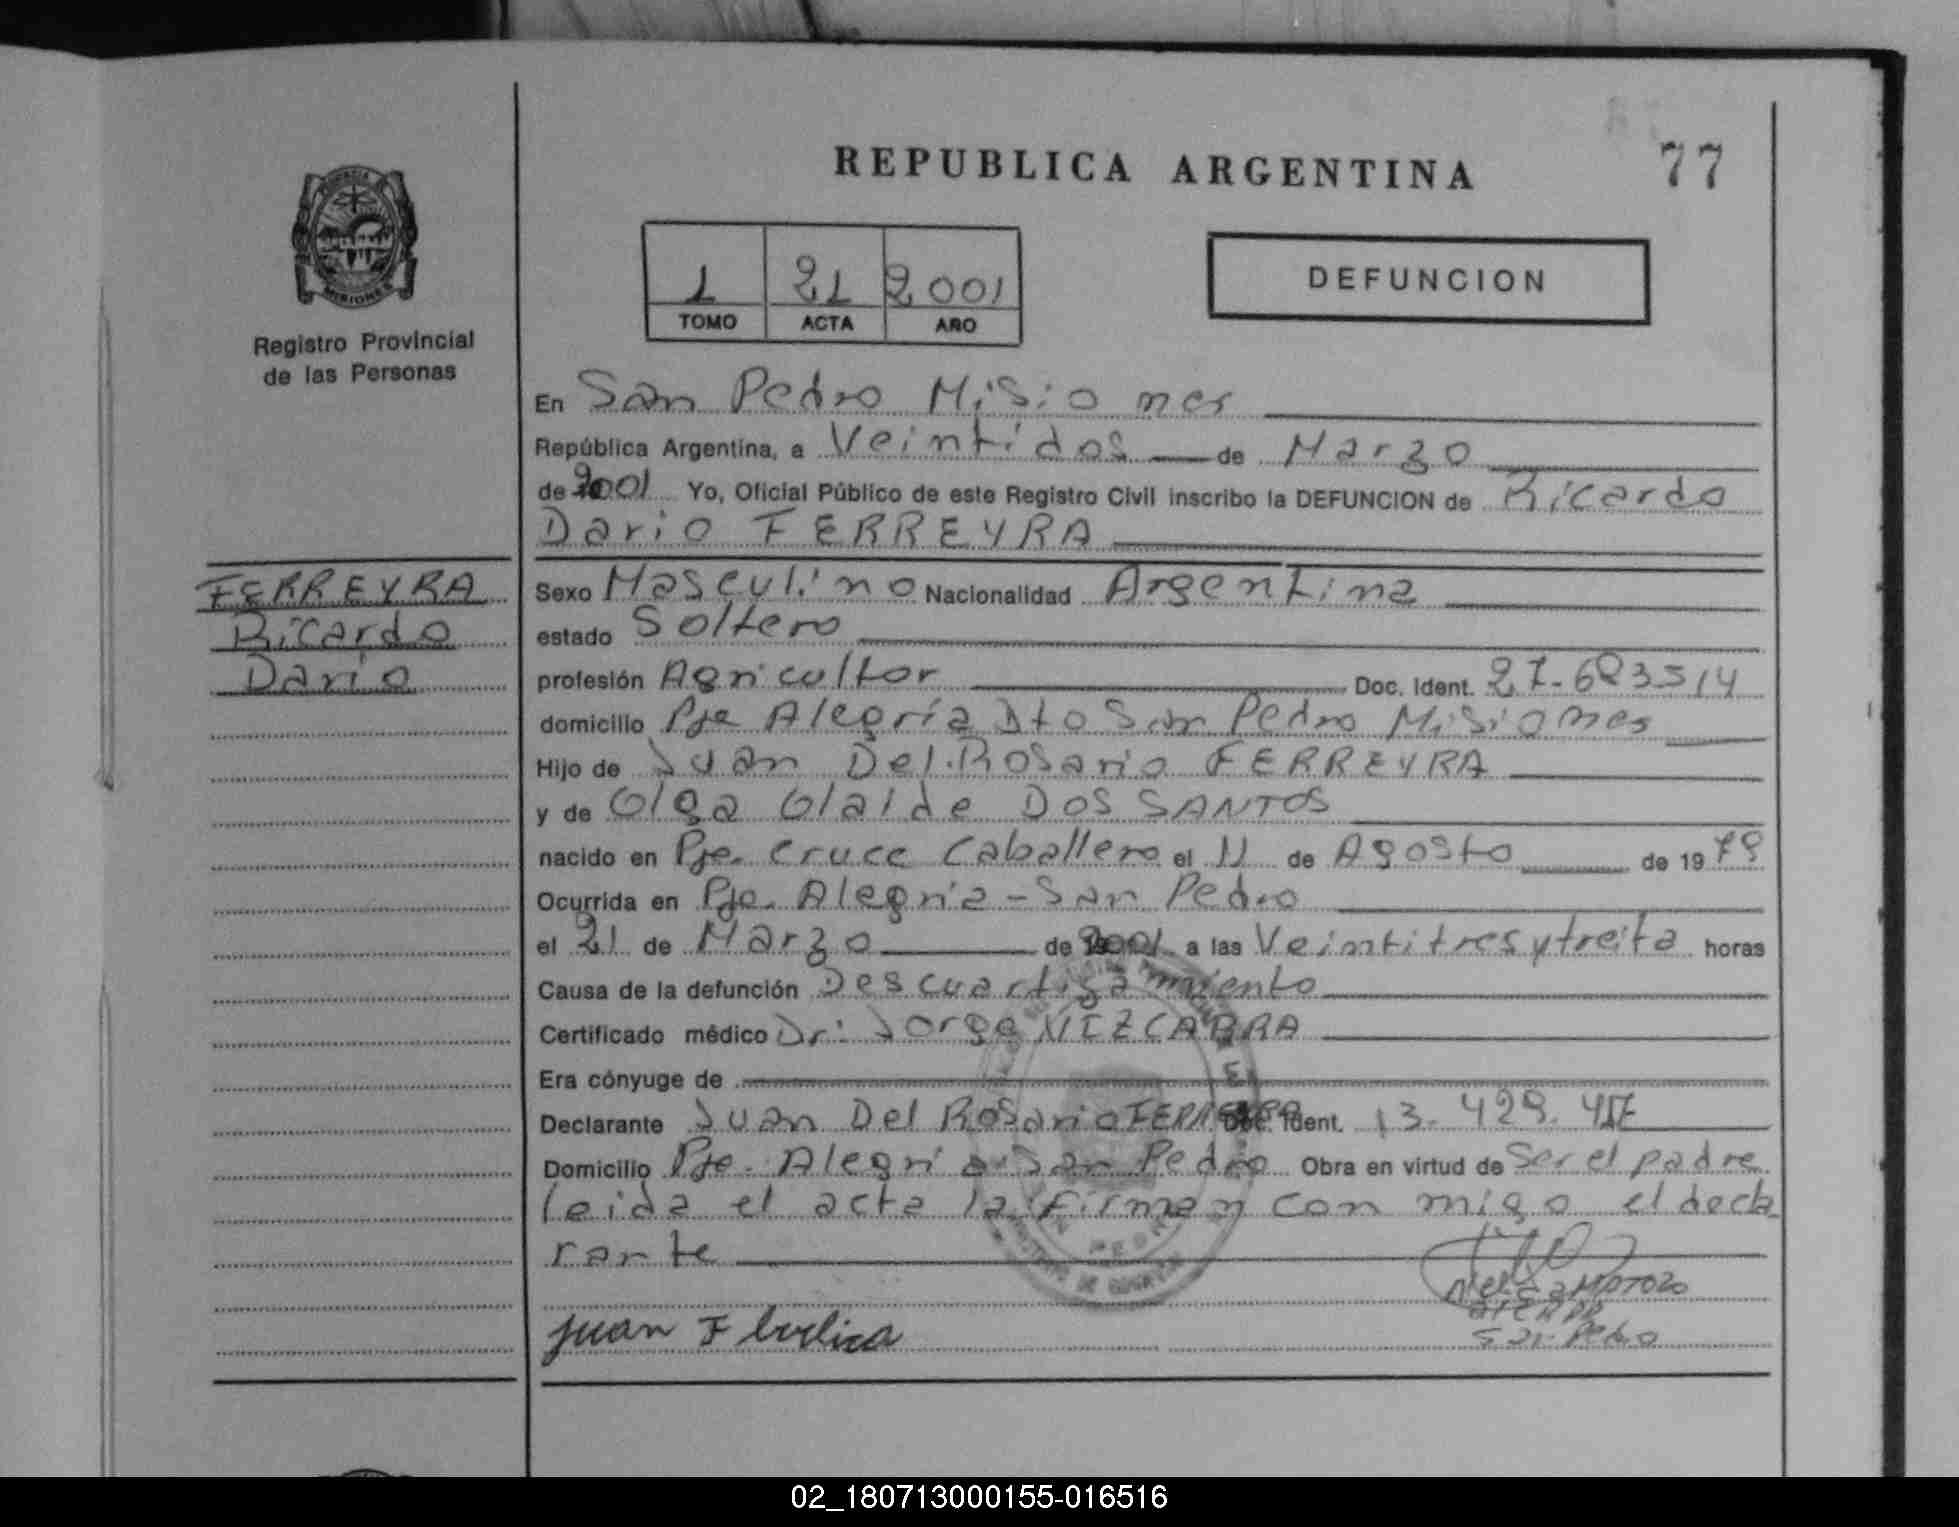 REPUBLICA ARGENTINA
77
MISIONES
Registro Provincial
de las Personas
1 21 2001
TOMO ACTA AÑO
DEFUNCION
En San Pedro Misiones
República Argentina, a Veintidos de Marzo
de 2001 Yo, Oficial Público de este Registro Civil inscribo la DEFUNCION de Ricardo
Dario FERREYRA
FERREYRA
Ricardo
Dario
Sexo Masculino Nacionalidad Argentina
estado Soltero
profesión Agricultor Doc. Ident.
domicilio Pje Alegría Dto San Pedro Misiones
Hijo de Juan Del Rosario FERREYRA
y de Olga DOS SANTOS
nacido en Pje. Cruce Caballero el 11 de Agosto de 19 79
Ocurrida en Pje. Alegria - San Pedro
el 21 de Marzo de 2001 a las Veintitres y treita horas
Causa de la defunción Descuartizamiento
Certificado médico Dr: Jorge
Era cónyuge de
Declarante Juan Del Rosario FERREYRA Doc. Ident. 13. 429.
Domicilio Pje. Alegria San Pedro Obra en virtud de Ser el padre
leida el acta la firman con migo el decla
rante
San Pedro
juan F
02_180713000155-016516